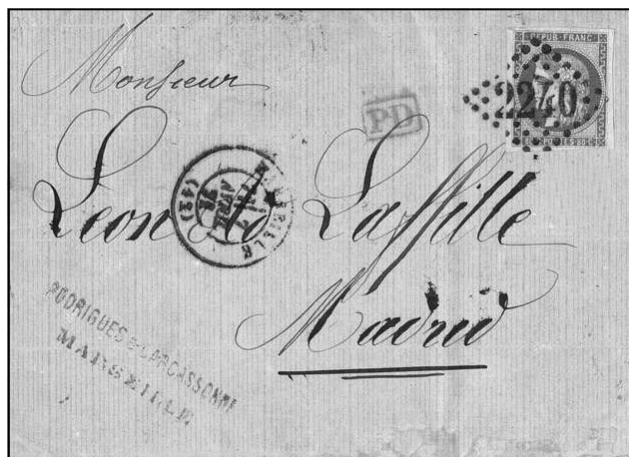 Monsieur
REPUB·FRANC
2240
PD
MARSEILLE
AVRIL
(12)
Leon Laffille
Madrid
RODRIGUES & CARCASSONNE
MARSEILLE